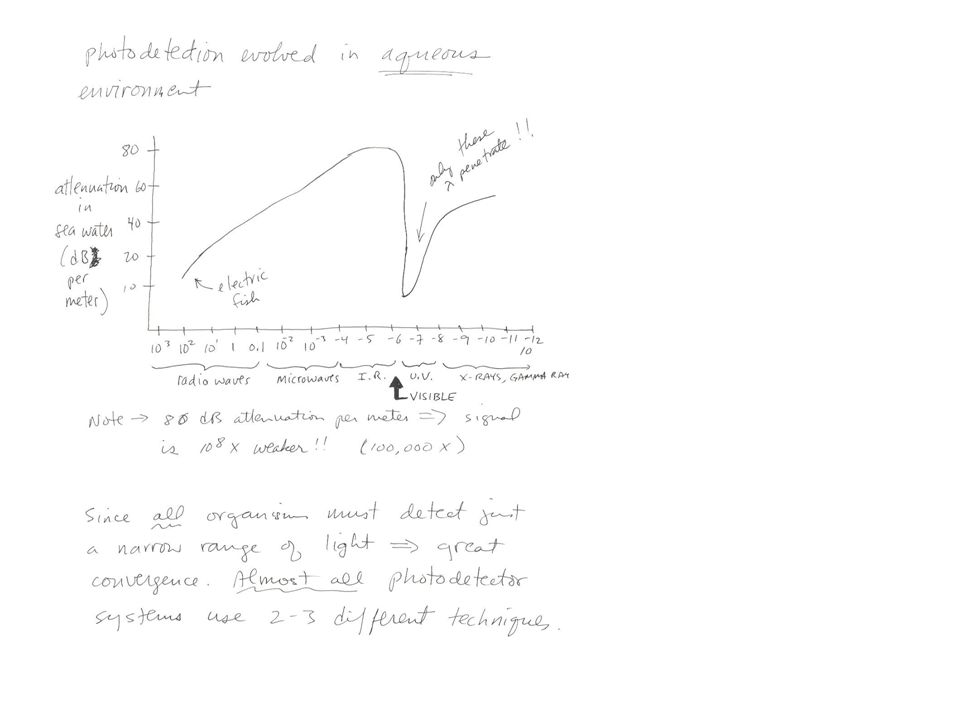 photodetection evolved in aqueous
environment
80
60
40
20
10
attenuation
in
sea water
(dB
per
meter)
only these
λ penetrate !!
electric
fish
10³ 10² 10¹ 1 0.1 10⁻² 10⁻³ -4 -5 -6 -7 -8 -9 -10 -11 -12
10
radio waves MICROWAVES I.R. U.V. X-RAYS, GAMMA RAY
VISIBLE
Note → 80 dB attenuation per meter ⇒ signal
is 10⁸ x weaker!! (100,000 x)
Since all organisms must detect just
a narrow range of light ⇒ great
convergence. Almost all photodetector
systems use 2-3 different techniques.